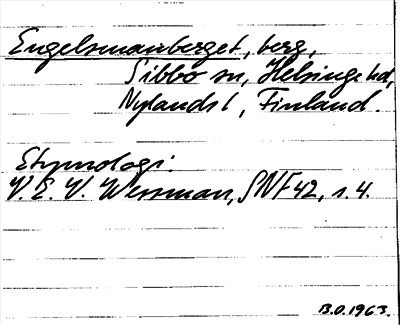 Engelsmanberget, berg,
Sibbo sn, Helsinge hd,
Nylands l, Finland.
Etymologi.
V. E. V. Wessman, SNF 42, s. 4.
B.O. 1963.